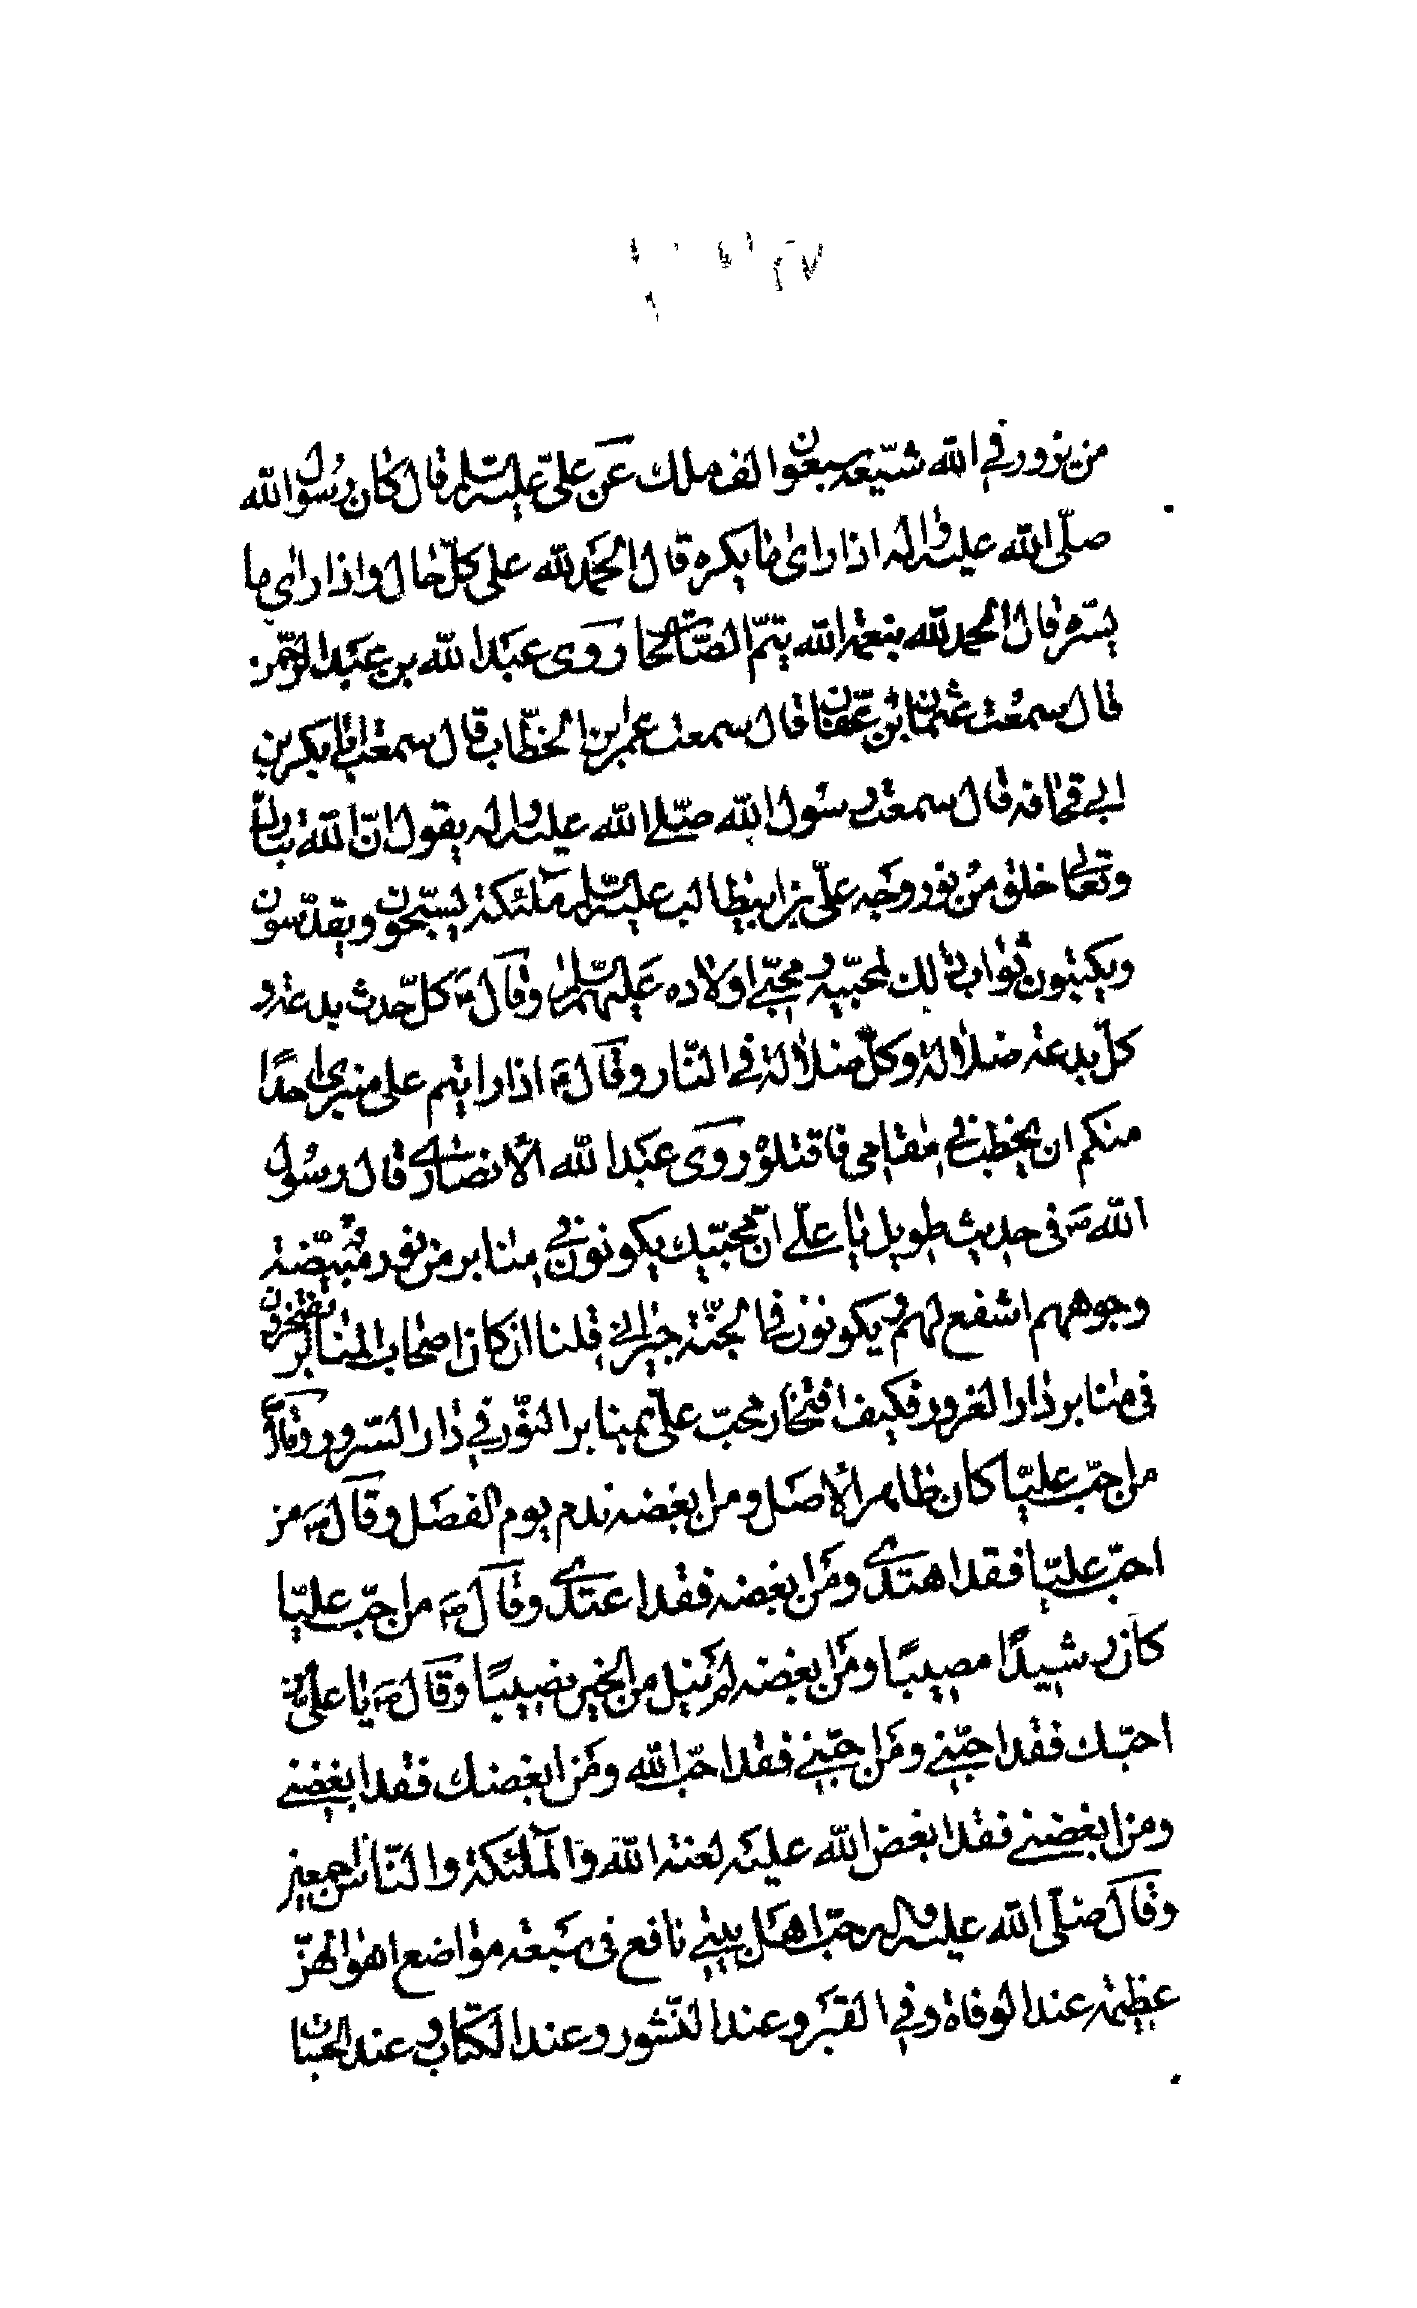 من يزور في الله شيّعه سبعون الف ملك عَن علىّ عليه السّلم قال كان رسُول الله
صلّى الله عليه واله اذا راى ما يكره قال الحَمد لله على كلّ حال واذا راى ما
يسّره قال الحمد لله بنعمه الله يتمّ الصّالحات رَوى عبَد الله بن عبَد الرّحمن
قال سمعُت عثمان ابُن عفّان قال سمعت عمر ابن الخطّاب قال سمعت ابا بكر بن
ابي قحافه قال سمعت رسُول الله صّلى الله عليه واله يقول انّ الله تبارك
وتعالى خلق مُن نور وَجه علّى بن ابيطالب عليه السّلم ملٓئكة يسّبحون ويقدّسون
ويكتبون ثواب ذلك لمحبّيه ومحبّى اولاده عَليهم السّلم وقال ص كلّ حدث بدعة و
كلّ بدعة ضلالة وكلّ ضلالة في النّار وقال ص اذا رايتم على منبرى احدًا
منكم ان يخطب في مقامى فاقتلوْه رَوَى عبَد الله الأنصارى قال رسُول
الله ص فى حديث طويل يا علّى انّ محبّيك يكونون في منابر من نور مبيّضة
وجوههم اشفع لهم ويكونون في الجنّة جيرانى قلنا ان كان اصحاب المنابر يفتخرون
فى منابر دار الغرور فكيف افتخار محبّ علىّ بمنابر النوّر في دار السّرور وقال ص
من احبّ عليّا كان ظاهر الأصَل ومن ابغضه ندم يوم الفصَل وقال ص من
احبّ عليّا فقد اهتدى ومَن ابغضه فقد اعتدى وقال ص من احبّ عليّا
كان رشيدًا مصيبًا ومَن ابغضه لم ينل من الخير نصيبًا وقال ص يا علىّ من
احبّك فقد احبّنى ومَن احبّنى فقد احبّ الله ومَن ابغضك فقد ابغضنى
ومن ابغضنى فقد ابغض الله عليَه لعنة الله وَالملٓئكة والنّاس اجمعين
وقال صلّى الله عليه واله حبّ اهَل بيتى نافع فى سَبعة مواضع اهوالهنّ
عظيمة عند الوفاة وفي القبَر وعند النّشور وعند الكتاب وعند الحسَاب